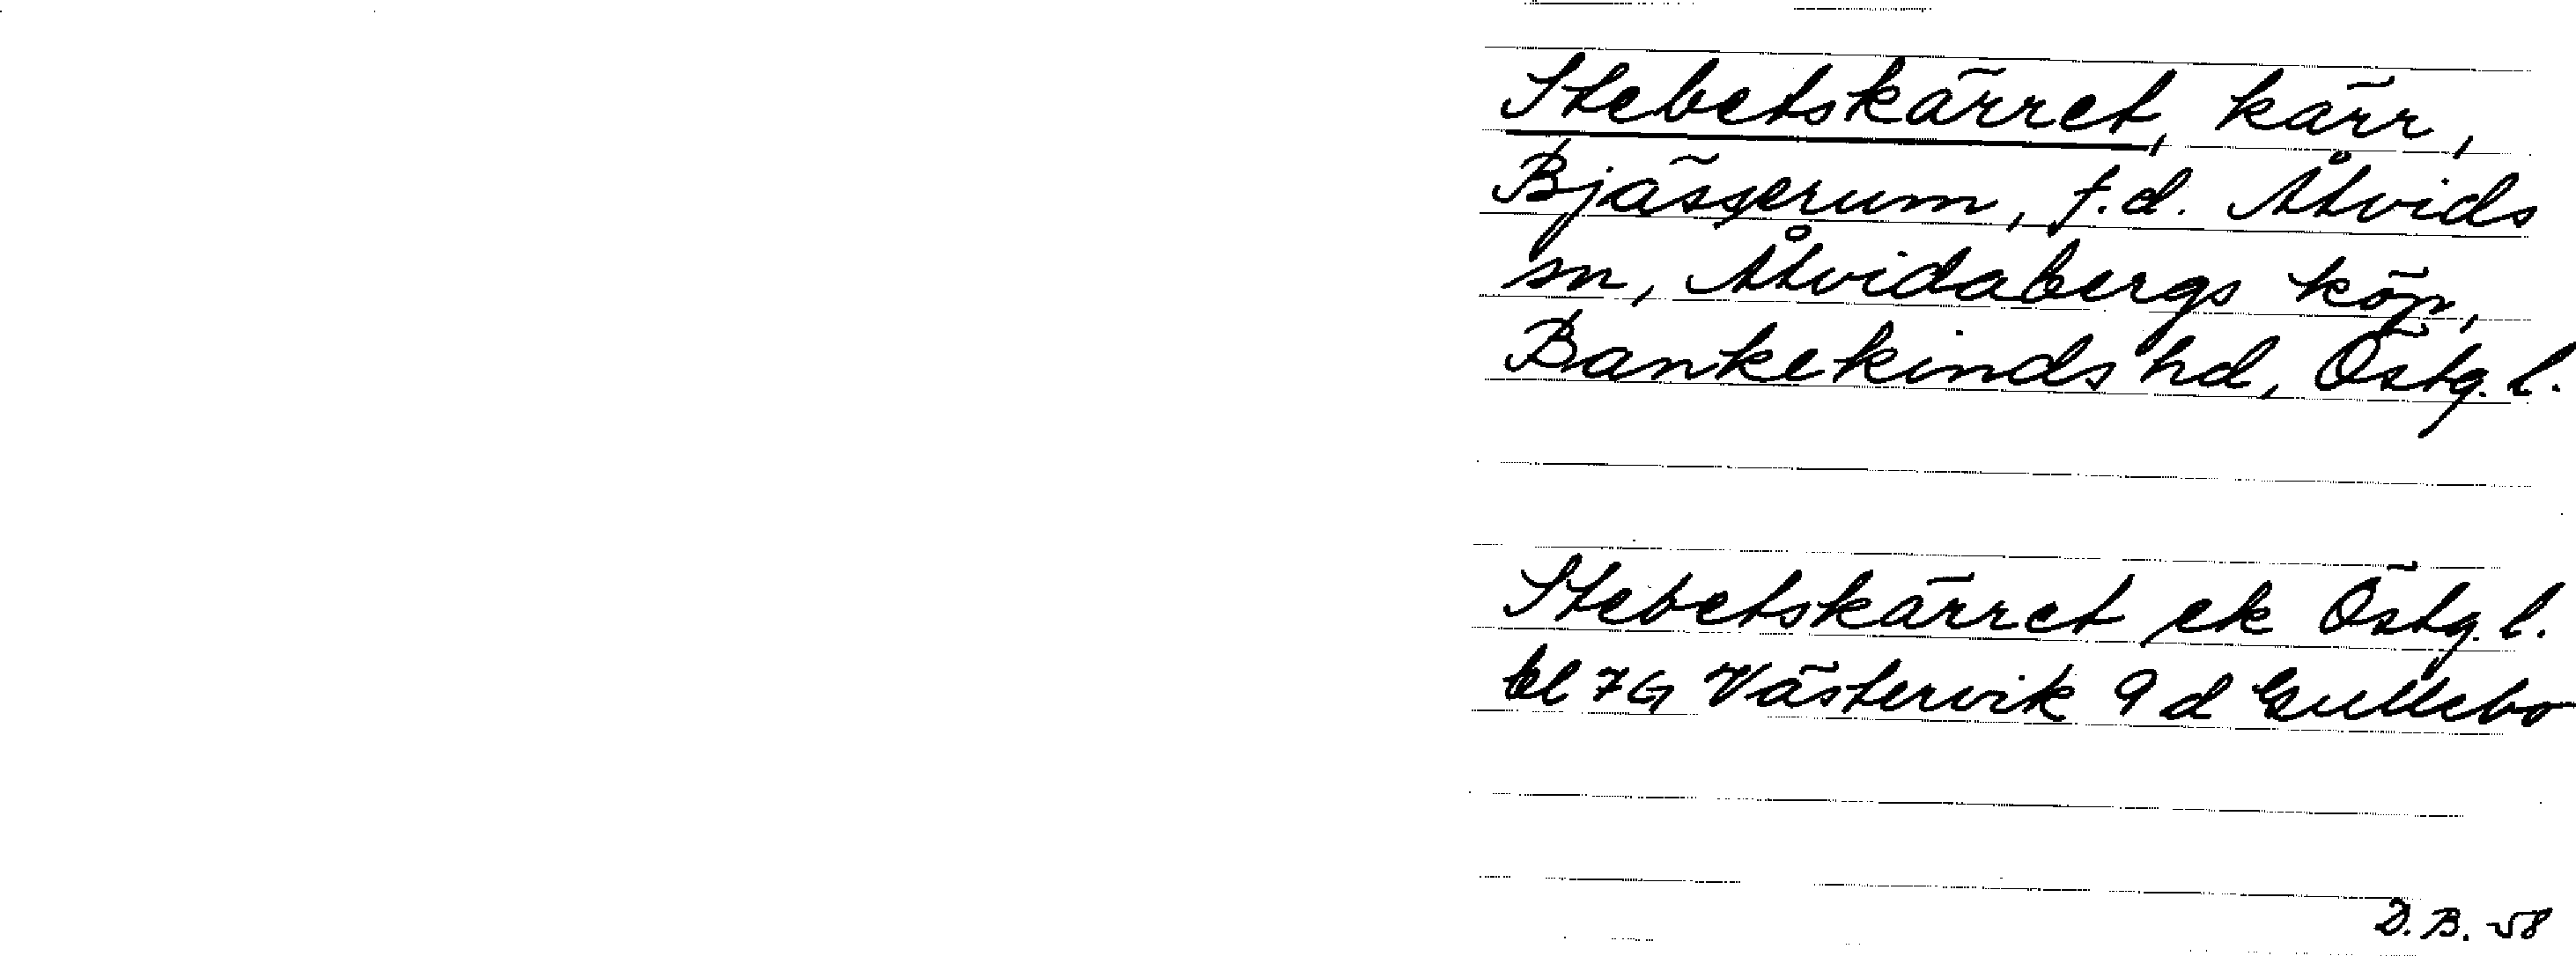 Stebetskärret, kärr,
Bjässerum, f.d. Åtvids
sn, Åtvidabergs köp,
Bankekinds hd, Östg. l.
Stebetskärret ek Östg. l.
bl 7G Västervik 9 d Gullebo
D. B. -58